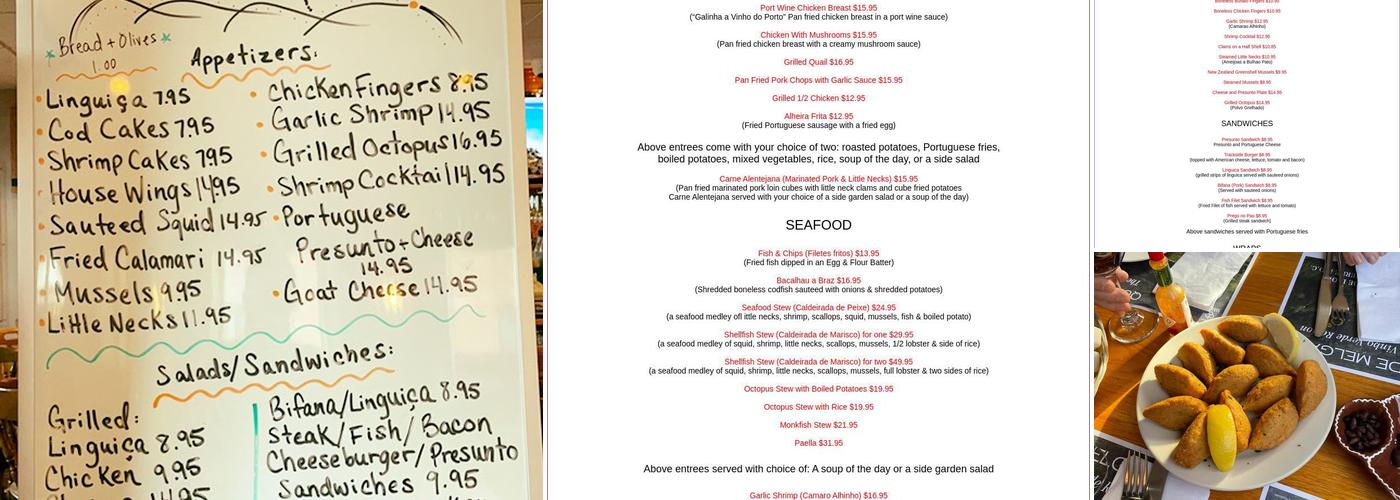 Bread + Olives
1.00
Appetizers:
Linguiça 7.95
Cod Cakes 7.95
Shrimp Cakes 7.95
House Wings 14.95
Sauteed Squid 14.95
Fried Calamari 14.95
Mussels 9.95
Little Necks 11.95
Chicken Fingers 8.95
Garlic Shrimp 14.95
Grilled Octopus 16.95
Shrimp Cocktail 14.95
Portuguese
Presunto + Cheese
14.95
Goat Cheese 14.95
Salads/Sandwiches:
Grilled:
Linguiça 8.95
Chicken 9.95
Bifana/Linguiça 8.95
Steak/Fish/Bacon
Cheeseburger/Presunto
Sandwiches 9.95
Port Wine Chicken Breast $15.95
("Galinha a Vinho do Porto" Pan fried chicken breast in a port wine sauce)
Chicken With Mushrooms $15.95
(Pan fried chicken breast with a creamy mushroom sauce)
Grilled Quail $16.95
Pan Fried Pork Chops with Garlic Sauce $15.95
Grilled 1/2 Chicken $12.95
Alheira Frita $12.95
(Fried Portuguese sausage with a fried egg)
Above entrees come with your choice of two: roasted potatoes, Portuguese fries,
boiled potatoes, mixed vegetables, rice, soup of the day, or a side salad
Carne Alentejana (Marinated Pork & Little Necks) $15.95
(Pan fried marinated pork loin cubes with little neck clams and cube fried potatoes
Carne Alentejana served with your choice of a side garden salad or a soup of the day)
SEAFOOD
Fish & Chips (Filetes fritos) $13.95
(Fried fish dipped in an Egg & Flour Batter)
Bacalhau a Braz $16.95
(Shredded boneless codfish sauteed with onions & shredded potatoes)
Seafood Stew (Caldeirada de Peixe) $24.95
(a seafood medley ofl ittle necks, shrimp, scallops, squid, mussels, fish & boiled potato)
Shellfish Stew (Caldeirada de Marisco) for one $29.95
(a seafood medley of squid, shrimp, little necks, scallops, mussels, 1/2 lobster & side of rice)
Shellfish Stew (Caldeirada de Marisco) for two $49.95
(a seafood medley of squid, shrimp, little necks, scallops, mussels, full lobster & two sides of rice)
Octopus Stew with Boiled Potatoes $19.95
Octopus Stew with Rice $19.95
Monkfish Stew $21.95
Paella $31.95
Above entrees served with choice of: A soup of the day or a side garden salad
Garlic Shrimp (Camaro Alhinho) $16.95
Boneless Chicken Fingers $10.95
Garlic Shrimp $12.95
(Camarao Alhinho)
Shrimp Cocktail $12.95
Clams on a Half Shell $10.85
Steamed Little Necks $10.95
(Ameijoas a Bulhao Pato)
New Zealand Greenshell Mussels $9.95
Steamed Mussels $9.95
Cheese and Presunto Plate $14.95
Grilled Octopus $14.95
(Polvo Grelhado)
SANDWICHES
Presunto Sandwich $8.95
Presunto and Portuguese Cheese
Trackside Burger $8.95
(topped with American cheese, lettuce, tomato and bacon)
Linguica Sandwich $8.95
(grilled strips of linguica served with sauteed onions)
Bifana (Pork) Sandwich $8.95
(Served with sauteed onions)
Fish Filet Sandwich $8.95
(Fried Filet of fish served with lettuce and tomato)
Prego no Pao $8.95
(Grilled steak sandwich)
Above sandwiches served with Portuguese fries
WRAPS
DE MELGA
Vinho Verde